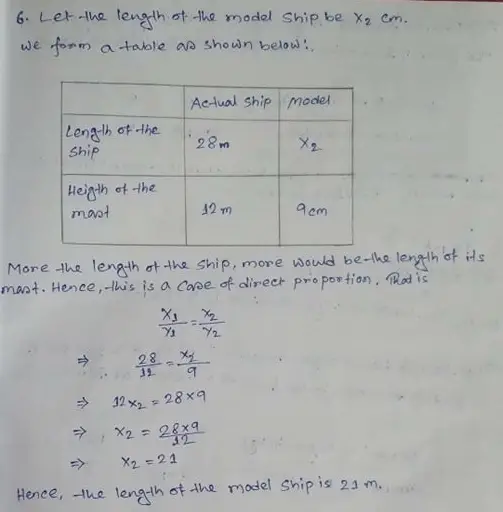 6. Let the length of the model ship be x₂ cm.
we form a table as shown below:.
Actual ship model
Length of the
ship
28m
x₂
Heigth of the
mast
12m
9cm
More the length of the ship, more would be the length of its
mast. Hence, this is a case of direct proportion. That is
x₁/y₁ = x₂/y₂
⇒ 28/12 = x₂/9
⇒ 12x₂ = 28×9
⇒ x₂ = 28×9/12
⇒ x₂ = 21
Hence, the length of the model ship is 21 m.